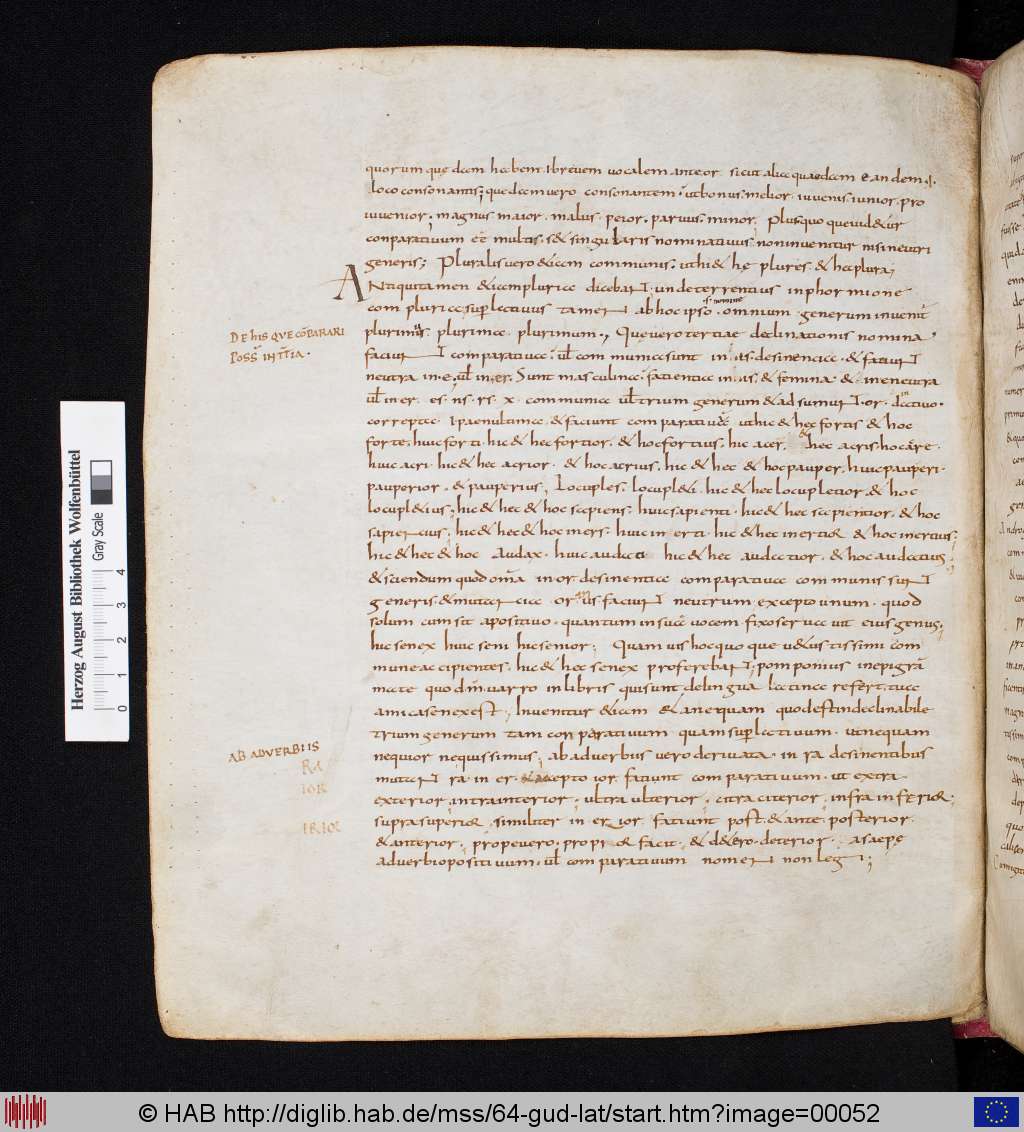 quorum quędam habent i breuem uocalem ante or sicut aliae quaedam eandem .i.
loco consonantis; quedam uero consonantem. ut bonus. melior. iuuenis. iunior. pro
iuuenior; magnus maior. malus. peior. paruus. minor; Plus quoque uidetur
conparatiuum ee multis. sed singularis nominatiuus non inuenitur nisi neutri
generis; Pluralis uero etiam communis. ut hi & hę plures & haec plura;
Antiqui tamen etiam pluria dicebant. unde terrentius in phormione
tam pluria superlectiuus tamen ab hoc ipso omnium generum inuenit
plurimus plurima plurimum; Que uero tertiae declinationis nomina
DE HIS QVE COPARARI
POSS IN TTIA.
faciunt comparatiua; ul communia sunt in .is. desinencia. & faciunt
neutra in .e. ul in .er. Sunt masculina. facientia in .is. & femina & in e neutra
ul in er. es. ns. rs. x. communia ul trium generum & adsumunt. or. datiuo.
correpta i paenultima. & faciunt comparatiua ut hic & hec fortis & hoc
forte, huic forti. hic & hec fortior. & hoc fortius, hic acer. hec acris. hoc acre.
huic acri. hic & hec acrior. & hoc acrius, hic & hec & hoc pauper, huic pauperi.
pauperior. & pauperius; Locuples. locupleti. hic & hec locupletior. & hoc
locupletius; hic & hec & hoc sapiens; huic sapienti. hic & hec sapientior. & hoc
sapientius; hic & hec & hoc iners. huic inerti. hic & hec inertior & hoc inertius;
hic & hec & hoc Audax. huic audaci hic & hec audatior. & hoc audatius;
& sciendum quod oma in or desinentia comparatiua communis sunt
generis. & mutancia or in us faciunt neutrum. excepto unum. quod
solum cum sit a positiuo. quantum in sua uocem fixo seruauit eius genus;
hic senex huic seni hic senior; Quamuis hoc quoque uetustissimi com
mune accipientes. hic & hec senex proferebant; pomponius in epigra
mate quod m uarro in libris qui sunt de lingua latina refert. tua
amica senex est; Inuenitur etiam & a nequam quod est indeclinabile
trium generum tam conparatiuum quam superlectiuum. ut nequam
AB ADVERBIIS
RA
IOR
IRIOR
nequior nequissimus; ab aduerbiis uero deriuata. in ra desinentibus
mutant ra in er. & accepto ior. faciunt comparatiuum. ut extra.
exterior. intra interior; ultra ulterior; citra citerior. infra inferior;
supra superior. similiter in erior. faciunt post. & ante. posterior.
& anterior; prope uero. propior facit; & de uero. deterior. a saepe
aduerbio positiuum. ul comparatiuum nomen non legi;
Herzog August Bibliothek Wolfenbüttel
Gray Scale
0 1 2 3 4
© HAB http://diglib.hab.de/mss/64-gud-lat/start.htm?image=00052